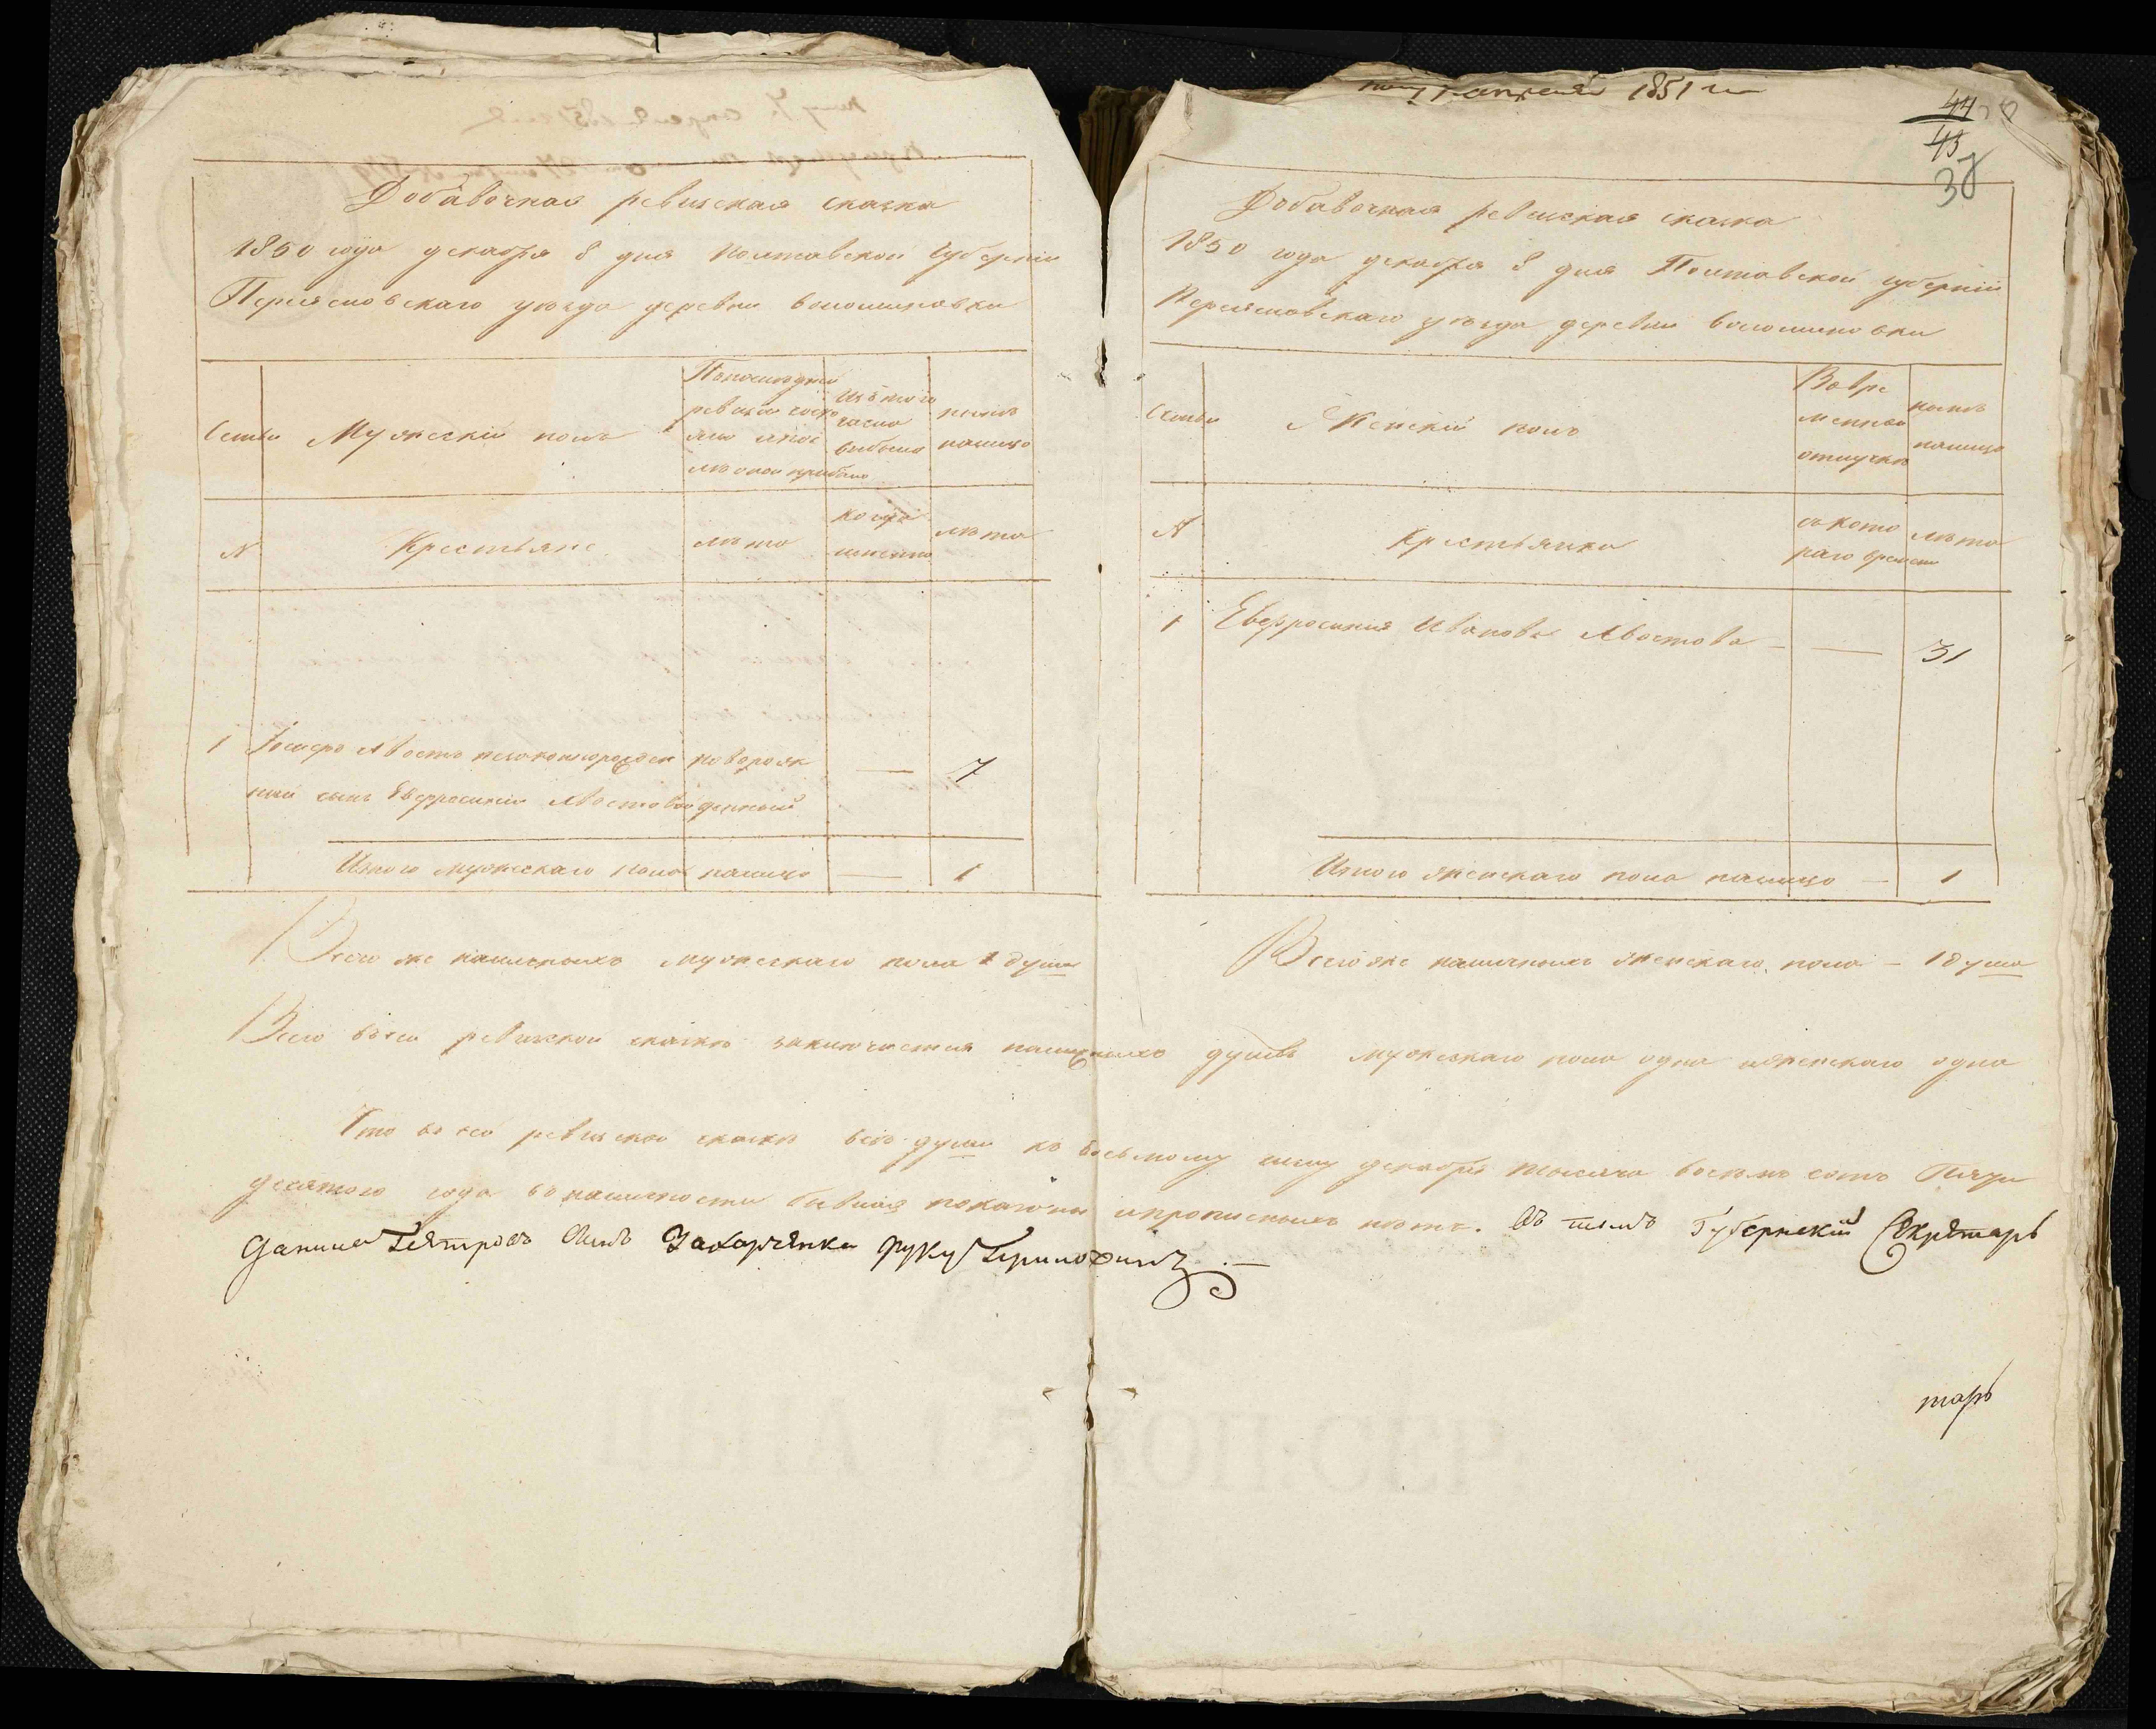 апреля 1851 г
44
45
38
Добавочная ревизская сказка
1850 года декабря 8 дня Полтавской губерніи
Переясловскаго уезда деревни Волошиновки
Семьи
Мужескій полъ
По последней
ревизіи состо
яло и после
оной прибыло
Изъ того
числа
выбыло
ныне
налицо
N
Крестьяне
лета
когда
именно
лета
1
Іосифъ Хвостъ незаконнорожден
ный сынъ Евфросиніи Хвостовой
новорож
денный
—
7
Итого мужескаго пола налицо — 1
Всего же наличныхъ мужескаго пола 1 душа
Добавочная ревизская сказка
1850 года декабря 8 дня Полтавской губерніи
Переясловскаго уезда деревни Волошиновки
Семьи
Женскій полъ
Во вре
менной
отлучке
ныне
налицо
N
Крестьянка
съ кото
раго времени
лета
1 Евфросинія Иванова Хвостова — — 31
Итого женскаго пола налицо — 1
Всего же наличныхъ женскаго пола — 1 душа
Всего въ сей ревизкой сказке заключается наличныхъ душъ мужескаго пола одна и женскаго одна
Что въ сей ревизской сказке все души къ восьмому числу декабря тысяча восемь сотъ Пяти
десятого года въ наличности бывшія показаны и прописныхъ нетъ. Въ томъ Губернскій Секретарь
Данила Петровъ Сынъ Захарченко руку Приложилъ —
тарь